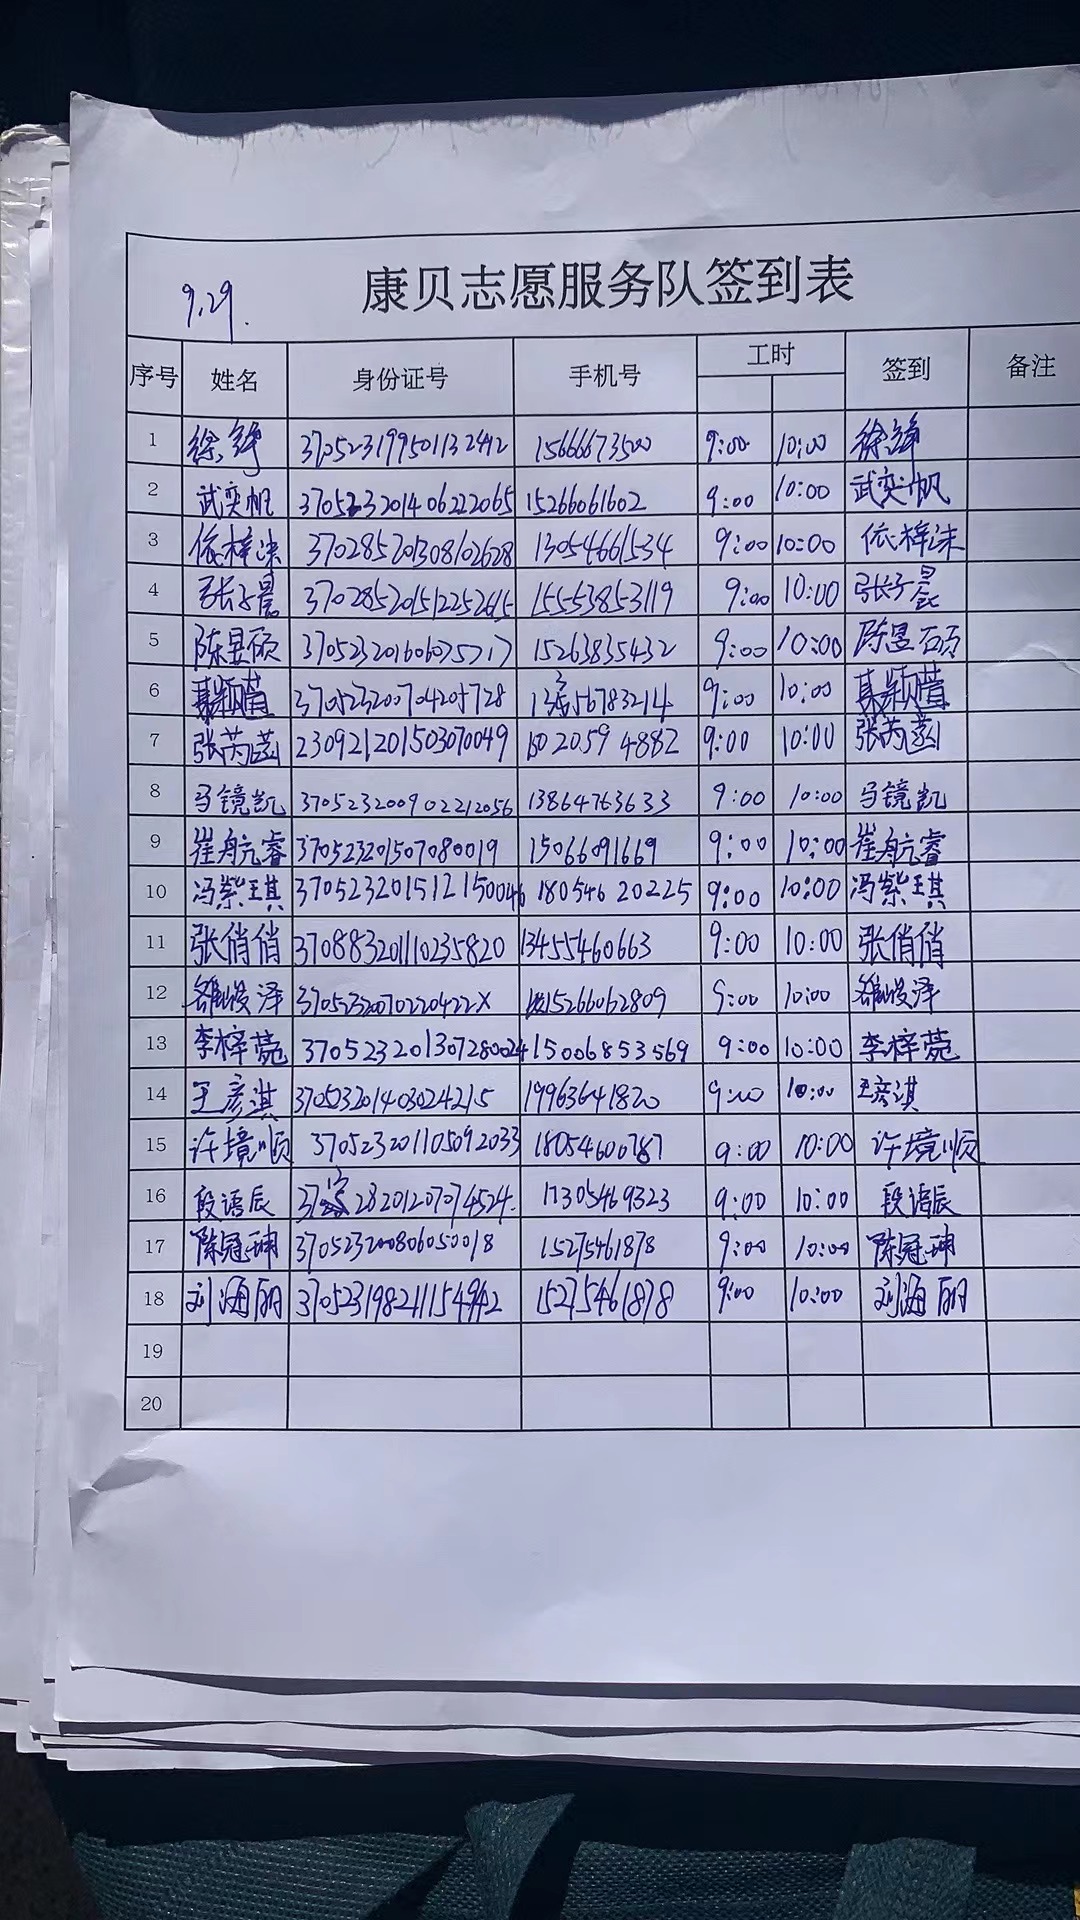 9.29.
康贝志愿服务队签到表
序号 姓名 身份证号 手机号 工时 签到 备注
1 徐锋 370523199501132412 15666673500 9:00 10:00 徐锋
2 武奕帆 370523201406222065 15266061602 9:00 10:00 武奕帆
3 依梓沫 370285201308102628 13054661534 9:00 10:00 依梓沫
4 张子晨 370285201512252615 15553853119 9:00 10:00 张子晨
5 陈昱硕 15263835432 9:00 10:00 陈昱硕
6 370523200704205728 9:00 10:00
7 张芮菡 230921201503070049 150 2059 4882 9:00 10:00 张芮菡
8 马镜凯 370523200902212056 13864763633 9:00 10:00 马镜凯
9 崔航睿 370523201507080019 15066091669 9:00 10:00 崔航睿
10 冯紫琪 370523201512150046 180546 20225 9:00 10:00 冯紫琪
11 张俏俏 370883201110235820 13455460663 9:00 10:00 张俏俏
12 37052320070220422X 15266062809 9:00 10:00
13 李梓菀 370523201307280024 15006853569 9:00 10:00 李梓菀
14 王彦淇 370523201403024215 19963641820 9:00 10:00 王彦淇
15 许境顺 370523201105092033 18054600787 9:00 10:00 许境顺
16 段语辰 17305469323 9:00 10:00 段语辰
17 陈冠珅 370523200806050018 15275461878 9:00 10:00 陈冠珅
18 刘海丽 370523198211154942 15275461878 9:00 10:00 刘海丽
19
20